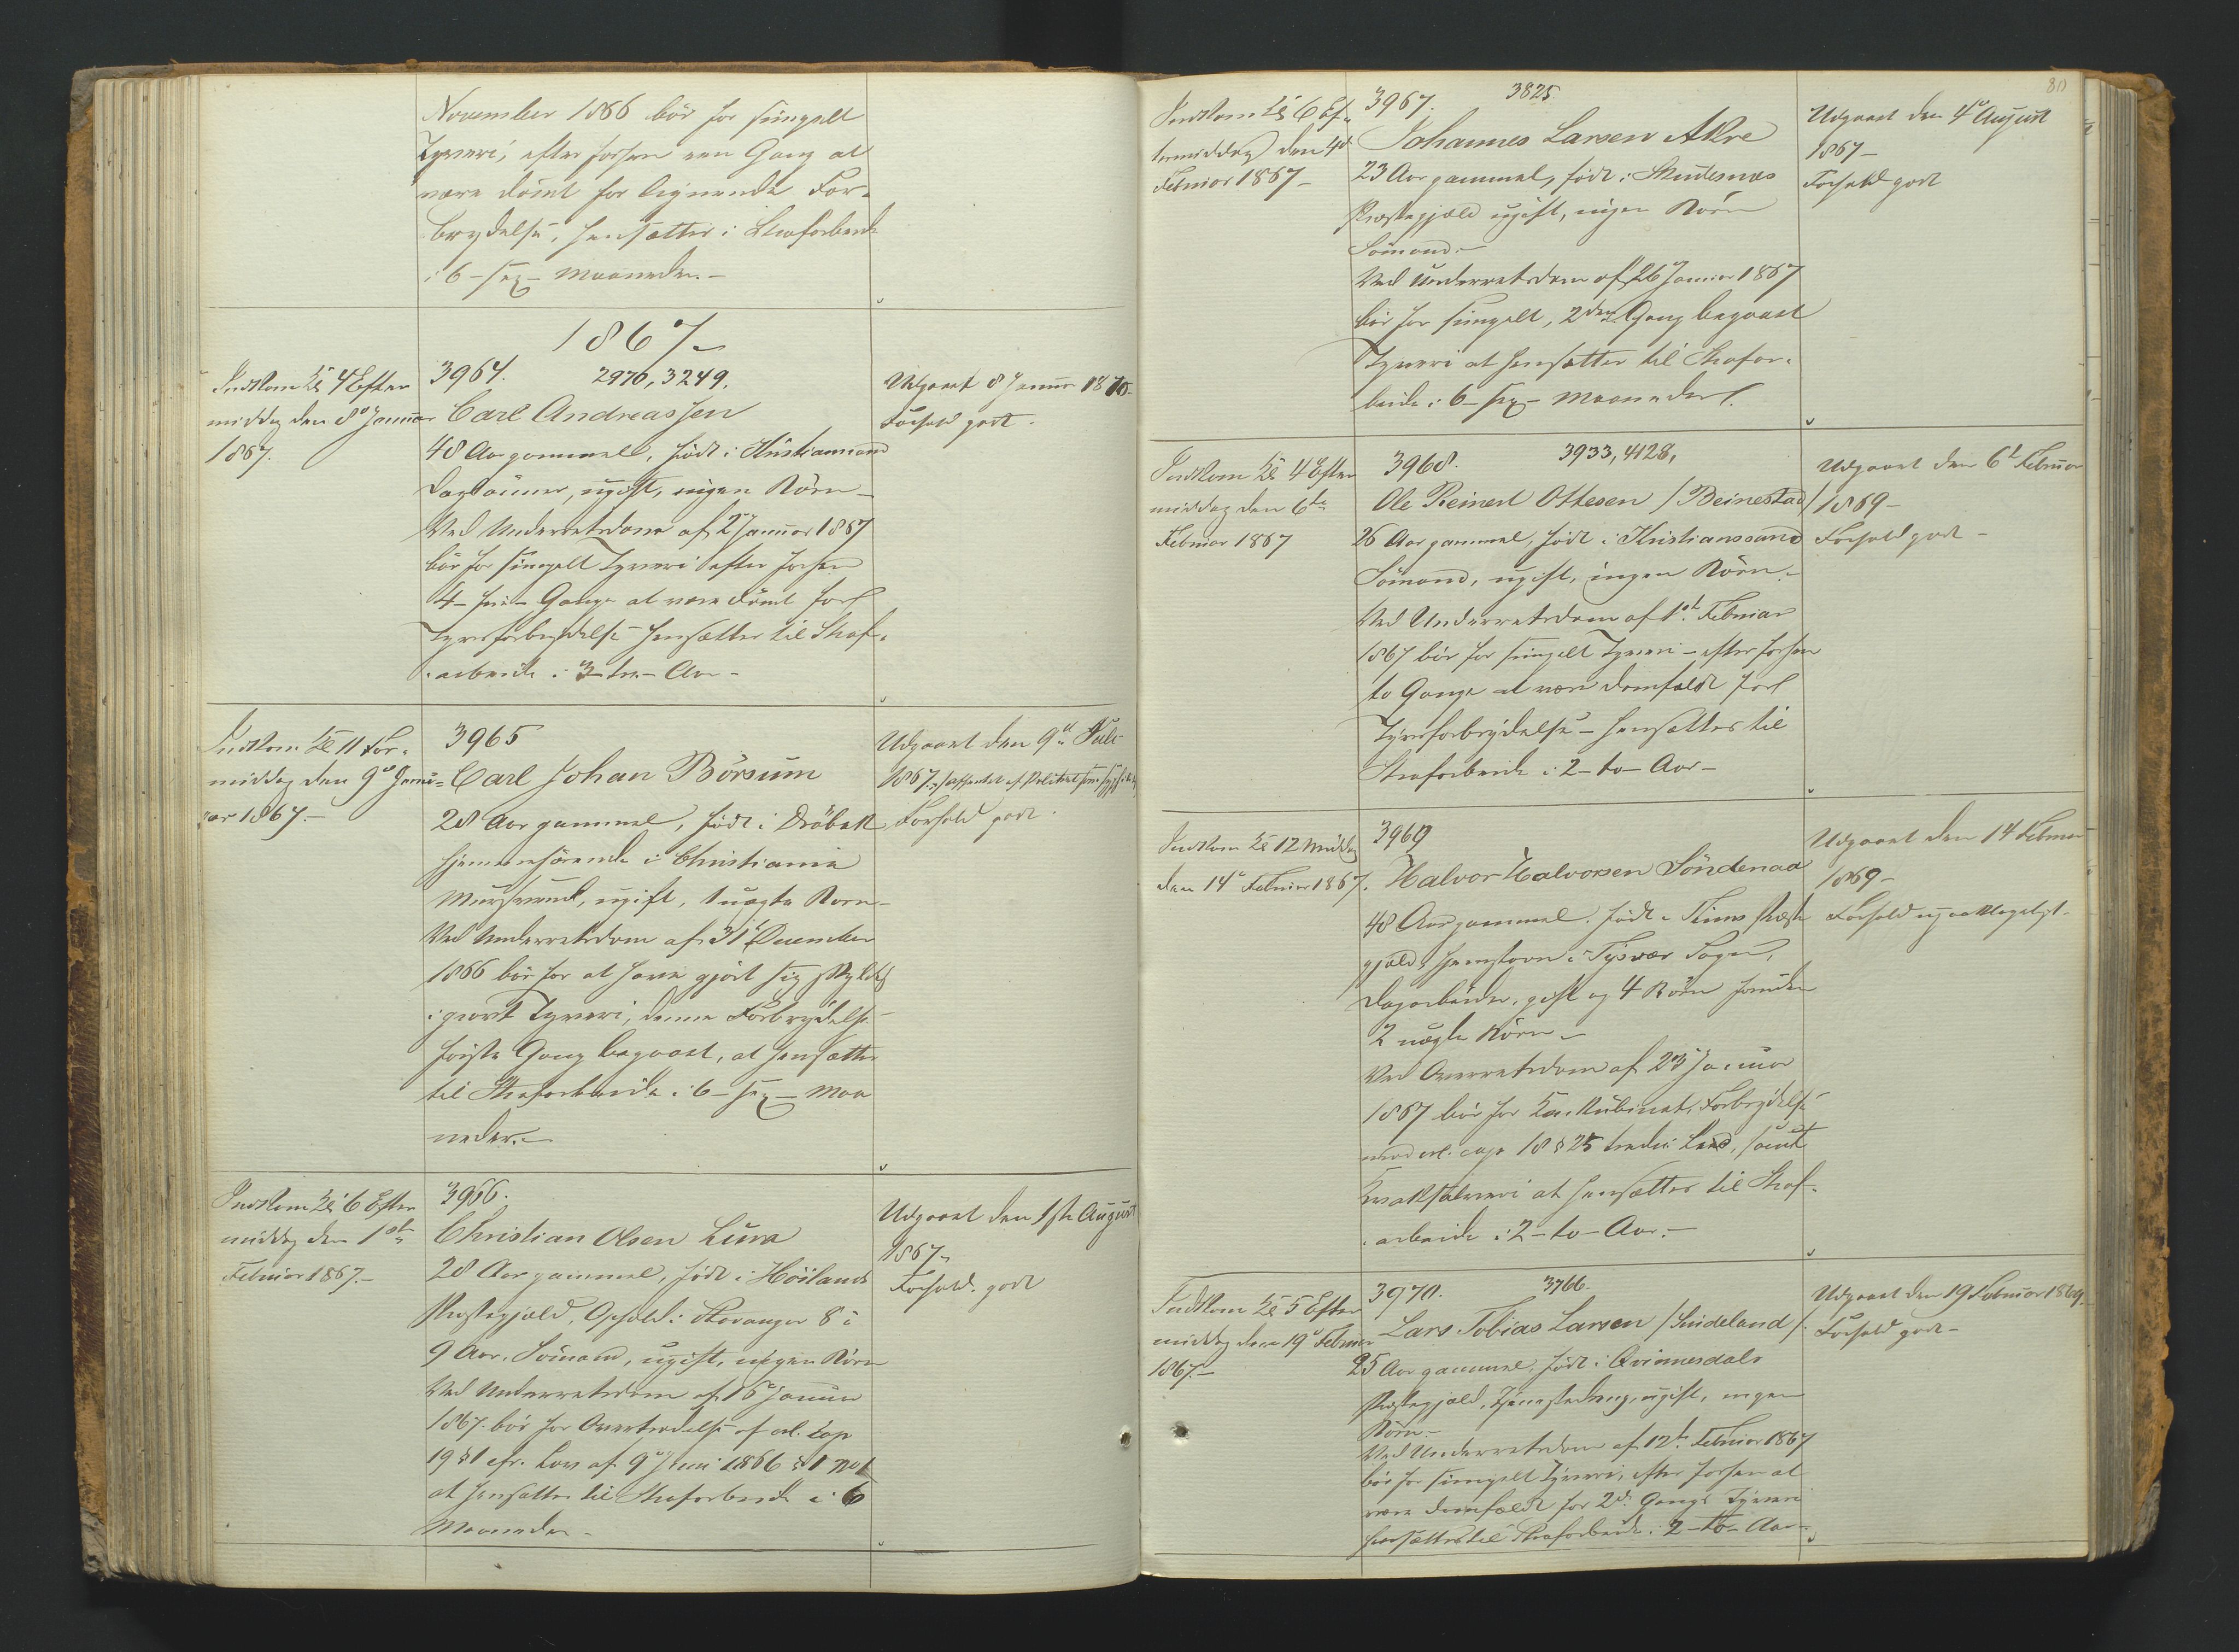 November 1866 bör for simpelt
Tyveri, efter forhen een Gang at
være dömt for lignende For-
brydelse, hensættes i Strafarbeide
i 6 - sex - Maaneder.-
1867-
Indkom Kl 4 Efter
middag den 8de Januar
1867.
3964. 2976, 3249.
Carl Andreassen
48 Aar gammel, født i Kristianssand
Dagleiner, ugift, ingen Börn -
Ved Underretsdom af 2 Januar 1867
bör for simpelt Tyveri efter forhen
4 - fire - Gange at være dömt for
Tyvsforbrydelse hensættes til Straf-
arbeide i 3 - tre - Aar -
Udgaaet 8 Januar 1870-
Forhold godt.
Indkom Kl 11 For-
middag den 9de Janu-
ar 1867.-
3965
Carl Johan Börsum
28 Aar gammel, født i Dröbak
hjemmehörende i Christiania
Muursvend, ugift, 1 uægte Barn -
Ved Underretsdom af 31 December
1866 bör for at have gjort sig skyldig
i grovt Tyveri, denne Forbrydelse
förste Gang begaaet, at hensættes
til Strafarbeide i 6 - sex - Maa
neder.-
Udgaaet den 9de Juli
1867. afhentet af Politiet
Forhold godt.
Indkom Kl 6 Efter
middag den 1ste
Februar 1867.-
3966.
Christian Olsen Lura
28 Aar gammel, født i Höilands
Præstegjæld, Ophold i Stavanger 8 à
9 Aar. Sömand, ugift, ingen Börn
Ved Underretsdom af 16 Januar
1867. bör for Overtrædelse af crl. Cap
19 § 1 cfr. Lov af 9 Juni 1866 § 1 No 1
at hensættes til Strafarbeide i 6
Maaneder -
Udgaaet den 1ste August
1867-
Forhold godt
80
Indkom Kl 6 Ef-
termiddag den 4de
Februar 1867-
3967. 3825
Johannes Larsen Akre
23 Aar gammel, født i Skudesnæs
Præstegjæld ugift, ingen Börn
Sömand.-
Ved Underretsdom af 26 Januar 1867
bör for simpelt, 2den Gang begaaet
Tyveri at hensættes til Strafar-
beide i 6 - sex - Maaneder.
Udgaaet den 4de August
1867-
Forhold godt
Indkom Kl 4 Efter
middag den 6te
Februar 1867
3968. 3933, 4128,
Ole Reinert Ottesen / Beinestad /
26 Aar gammel, født i Kristianssand
Sömand, ugift, ingen Börn.-
Ved Underretsdom af 1st Februar
1867 bör for simpelt Tyveri - efter forhen
to Gange at være domfældt for
Tyvsforbrydelse - hensættes til
Strafarbeide i 2 - to - Aar -
Udgaaet den 6te Februar
1869-
Forhold godt -
Indkom Kl 12 Middag
den 14de Februar 1867.
3969
Halvor Halvorsen Söndenaa
48 Aar gammel, født i Præste
gjæld, hjemstavn i Tysvær Sogn,
Dagarbeider, gift og 4 Börn foruden
2 uægte Börn -
Ved Overretsdom af 23 Januar
1867 bör for Forbrydelse
mod crl. cap 18 § 25 tredie Led, samt
Kvaksalveri at hensættes til Straf-
arbeide i 2 - to - Aar.-
Udgaaet den 14 Februar
1869-
Forhold upaaklageligt.
Indkom Kl 5 Efter
middag den 19de Februar
1867.-
3970. 3766
Lars Tobias Larsen / Sindeland /
25 Aar gammel, født i Qvinnesdals
Præstegjæld, ugift, ingen
Börn.-
Ved Underretsdom af 12te Februar 1867
bör for simpelt Tyveri, efter forhen at
være domfældt for 2de Gangs Tyveri
hensættes til Strafarbeide i 2 - to - Aar -
Udgaaet den 19 Februar 1869.
Forhold godt -